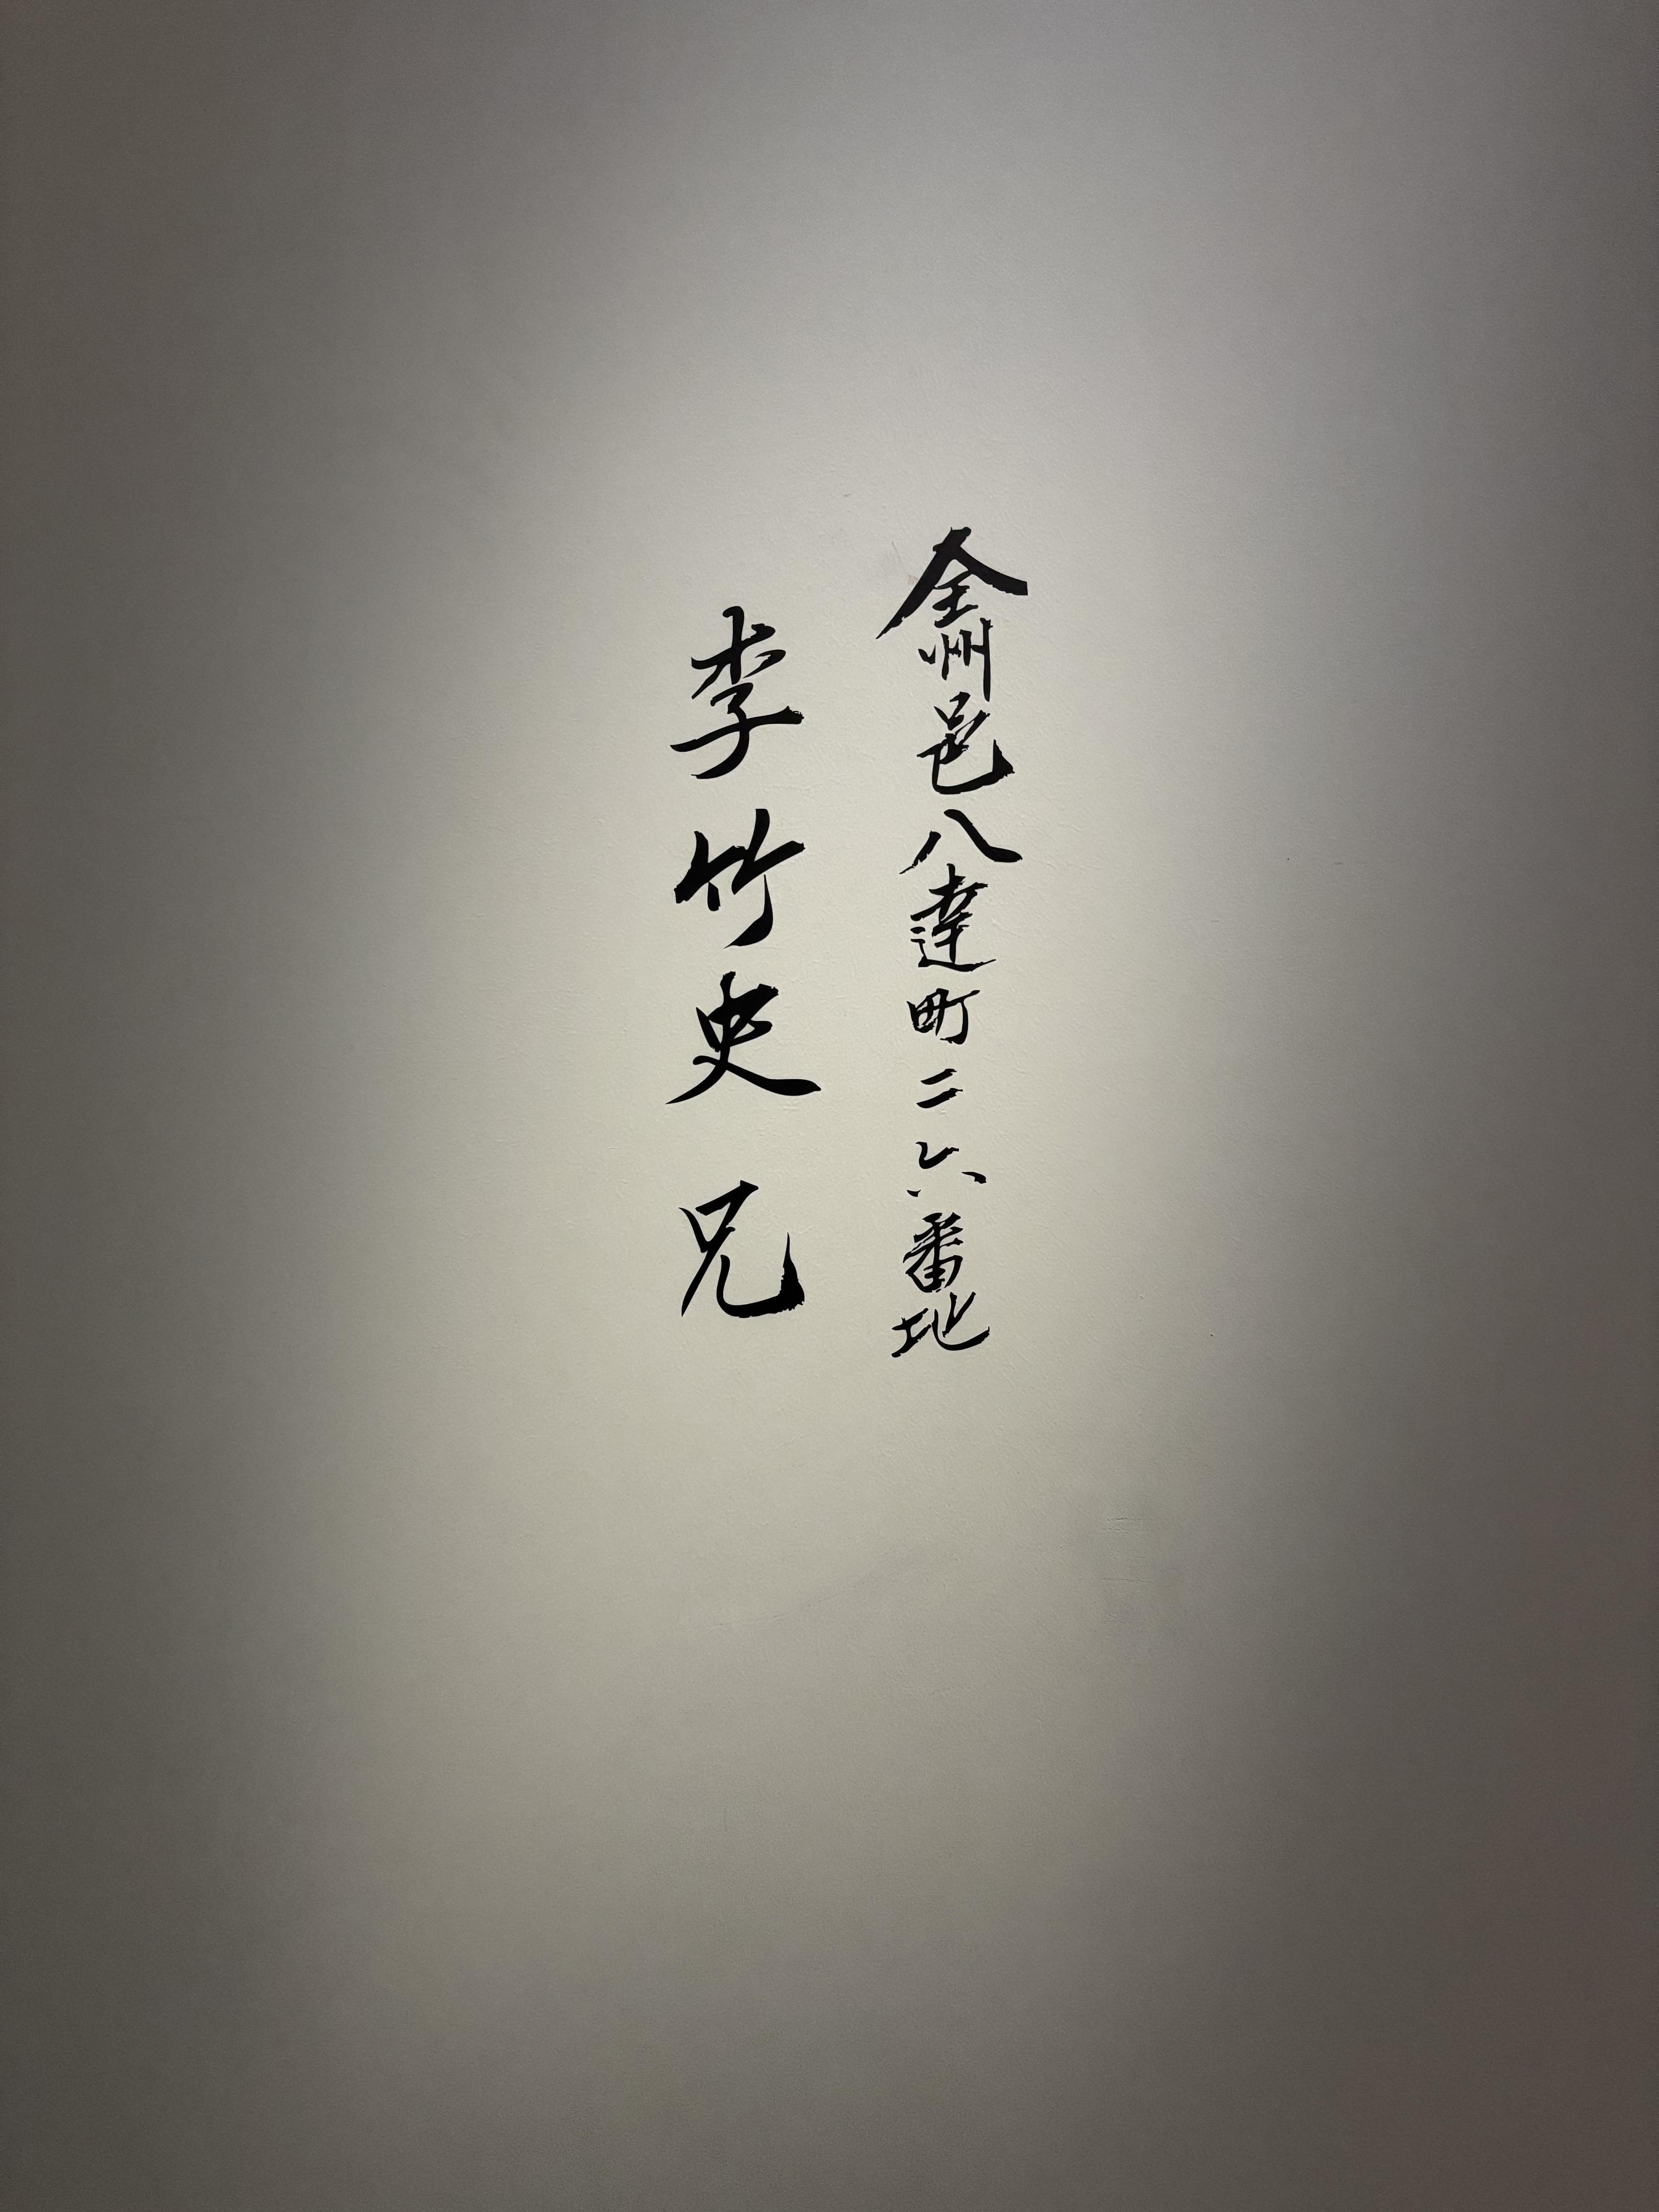 全州邑八達町二六番地
李竹史兄